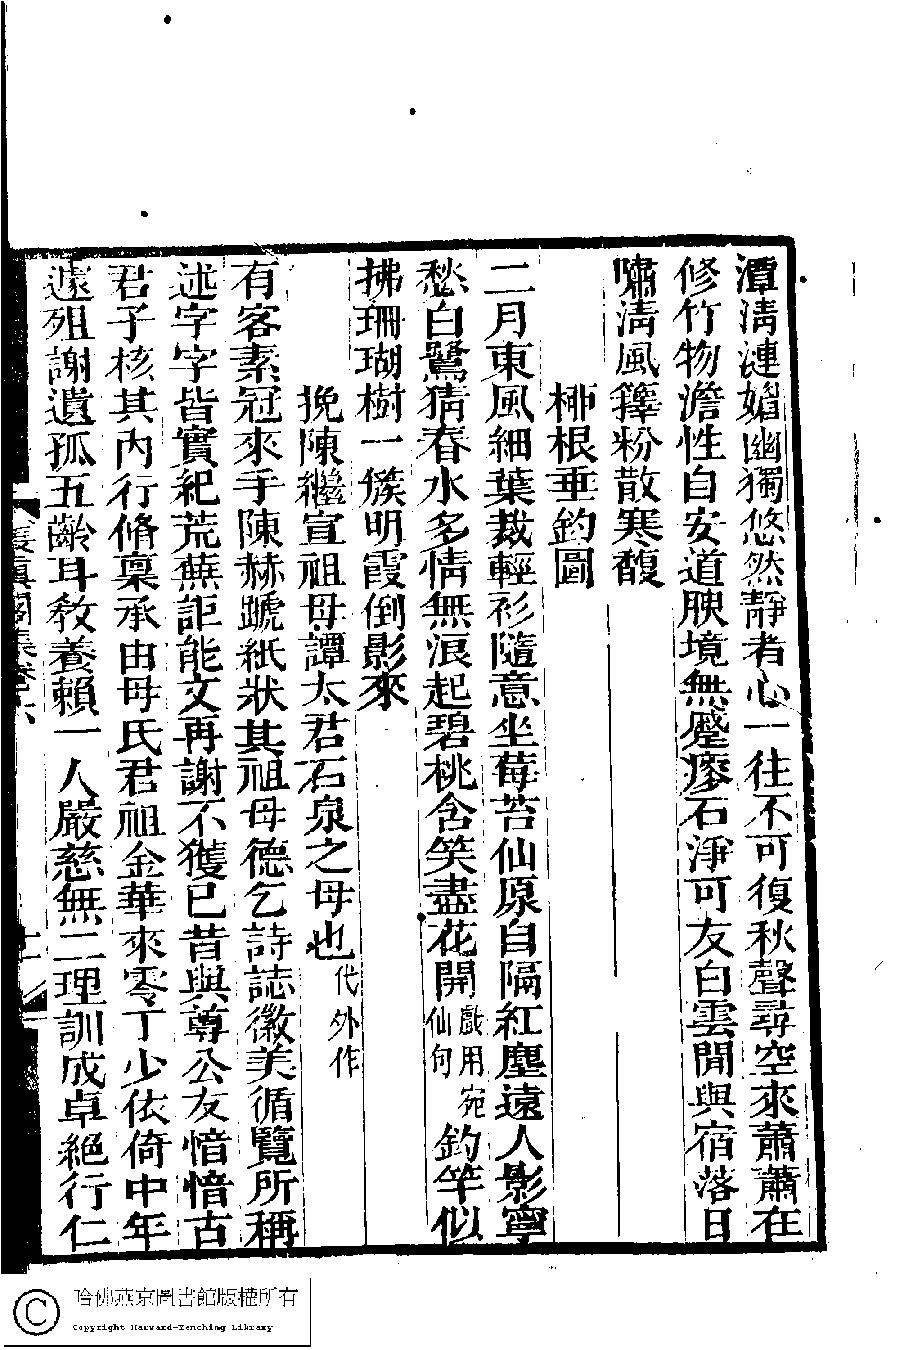 潭淸漣媚幽獨悠然靜者心一往不可復秋聲尋空來蕭蕭在
修竹物澹性自安道腴境無瘞瘮石淨可友白雲閒與宿落日
嘯淸風籜粉散寒馥
桺根垂釣圖
二月東風細葉裁輕衫隨意坐莓苔仙原自隔紅塵遠人影寧
愁白鷺猜春水多情無浪起碧桃含笑盡花開戲用宛仙句釣竿似
拂珊瑚樹一簇明霞倒影來
挽陳繼宣祖母譚太君石泉之母也代外作
有客素冠來手陳赫蹏紙狀其祖母德乞詩誌徽美循覽所稱
述字字皆實紀荒蕪詎能文再謝不獲已昔與尊公友愔愔古
君子核其內行脩稟承由母氏君祖金華來零丁少依倚中年
遽殂謝遺孤五齡耳敎養賴一人嚴慈無二理訓成卓絕行仁
長眞閣集卷六
哈佛燕京圖書館版權所有
Copyright Harvard-Yenching Library